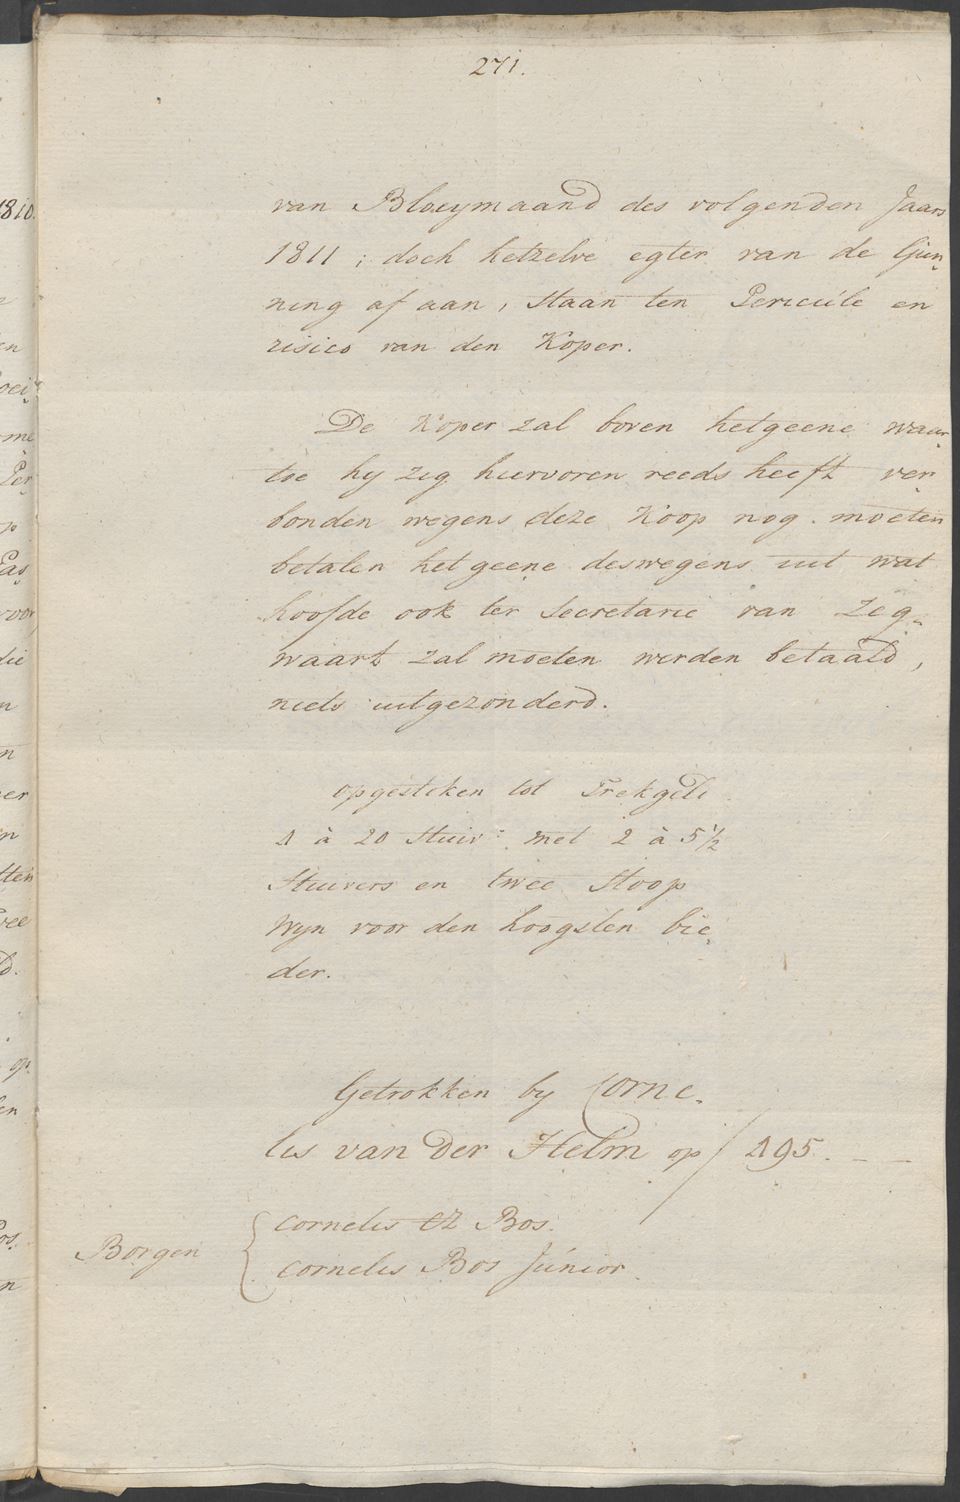 271.
van Bloeymaand des volgenden Jaars
1811; doch hetzelve egter van de Gun-
ning af aan, staan ten Pericúle en
risico van den Koper.
De Koper zal boven hetgeene waar-
toe hy zig hiervoren reeds heeft ver-
bonden wegens deze Koop nog moeten
betalen hetgeene deswegens uit wat
hoofde ook ter Secretarie van Zeg-
waart zal moeten werden betaald,
niets uitgezonderd.
opgesteken tot Trekgeld
4 à 20 Stuiv: met 2 à 5½
Stuivers en twee Stoop
Wyn voor den hoogsten bie-
der.
Getrokken by Corne-
lis van der Helm op ƒ 495. — —
Borgen { Cornelis CZ Bos.
Cornelis Bos Júnior.